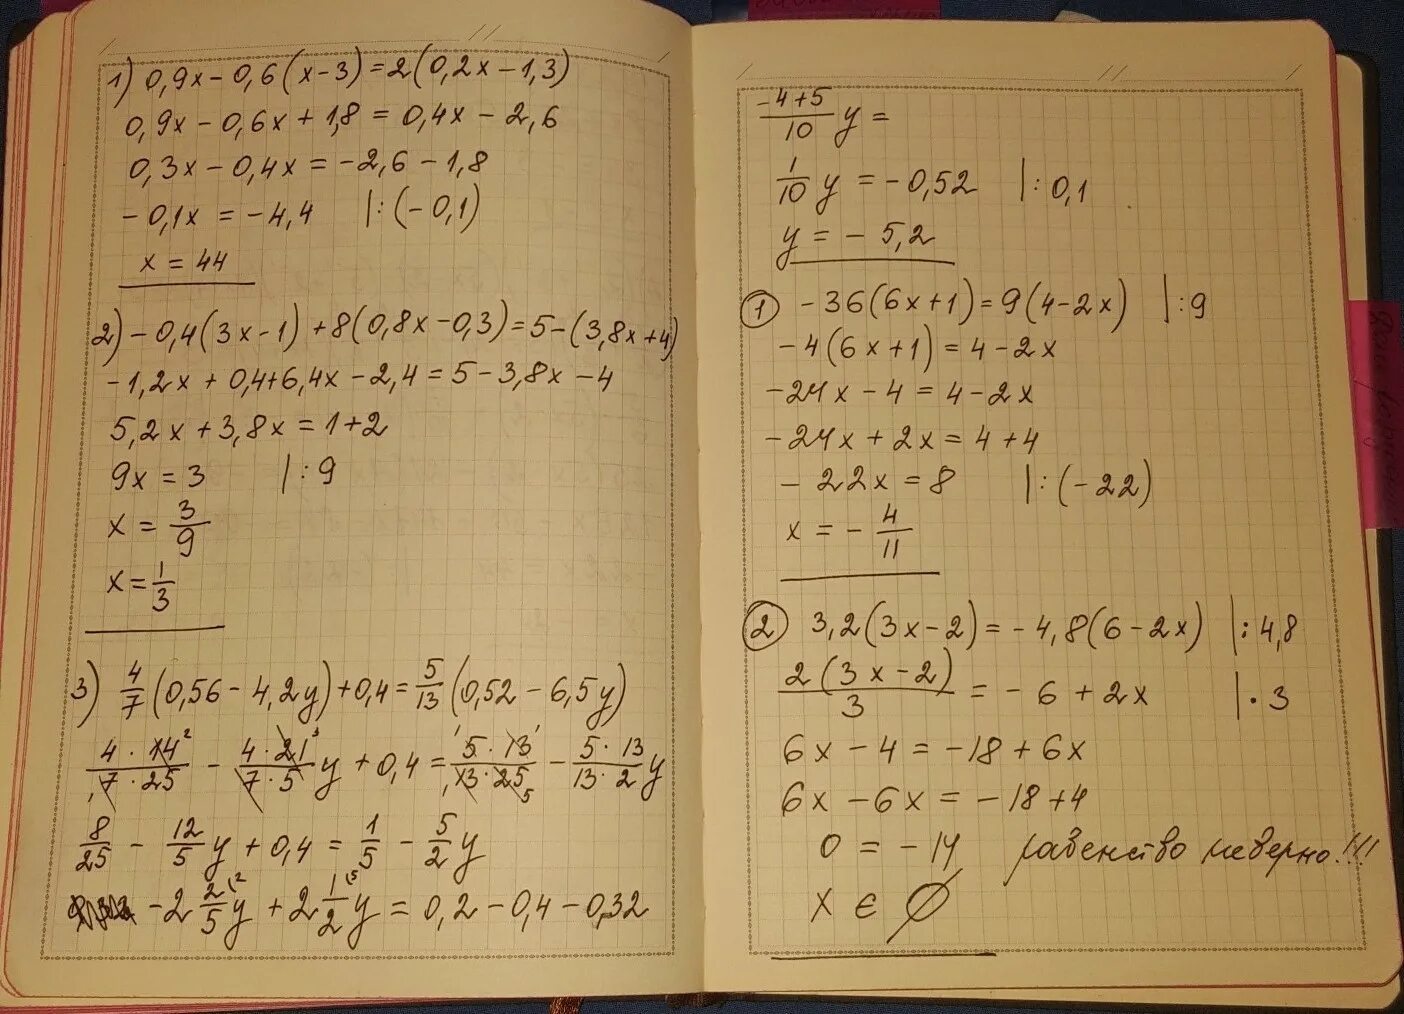 1) 0,9x - 0,6(x-3) = 2(0,2x - 1,3)
0,9x - 0,6x + 1,8 = 0,4x - 2,6
0,3x - 0,4x = -2,6 - 1,8
-0,1x = -4,4 |:(-0,1)
x = 44
2) -0,4(3x-1) + 8(0,8x-0,3) = 5-(3,8x+4)
-1,2x + 0,4 + 6,4x - 2,4 = 5 - 3,8x - 4
5,2x + 3,8x = 1+2
9x = 3 |:9
x = 3/9
x = 1/3
3) 4/7 (0,56 - 4,2y) + 0,4 = 5/13 (0,52 - 6,5y)
4·14²/7·25 - 4·21³/7·5 y + 0,4 = 5·13/13·25 5 - 5·13/13·2 y
8/25 - 12/5 y + 0,4 = 1/5 - 5/2 y
-2 2/5 (² y + 2 1/2 (⁵ y = 0,2 - 0,4 - 0,32
-4+5/10 y =
1/10 y = -0,52 |:0,1
y = -5,2
1 -36(6x+1) = 9(4-2x) |:9
-4(6x+1) = 4-2x
-24x - 4 = 4-2x
-24x + 2x = 4+4
-22x = 8 |:(-22)
x = -4/11
2 3,2(3x-2) = -4,8(6-2x) |:4,8
2(3x-2)/3 = -6 + 2x |·3
6x - 4 = -18 + 6x
6x - 6x = -18+4
0 = -14 равенство неверно!!!
x ∈ ∅